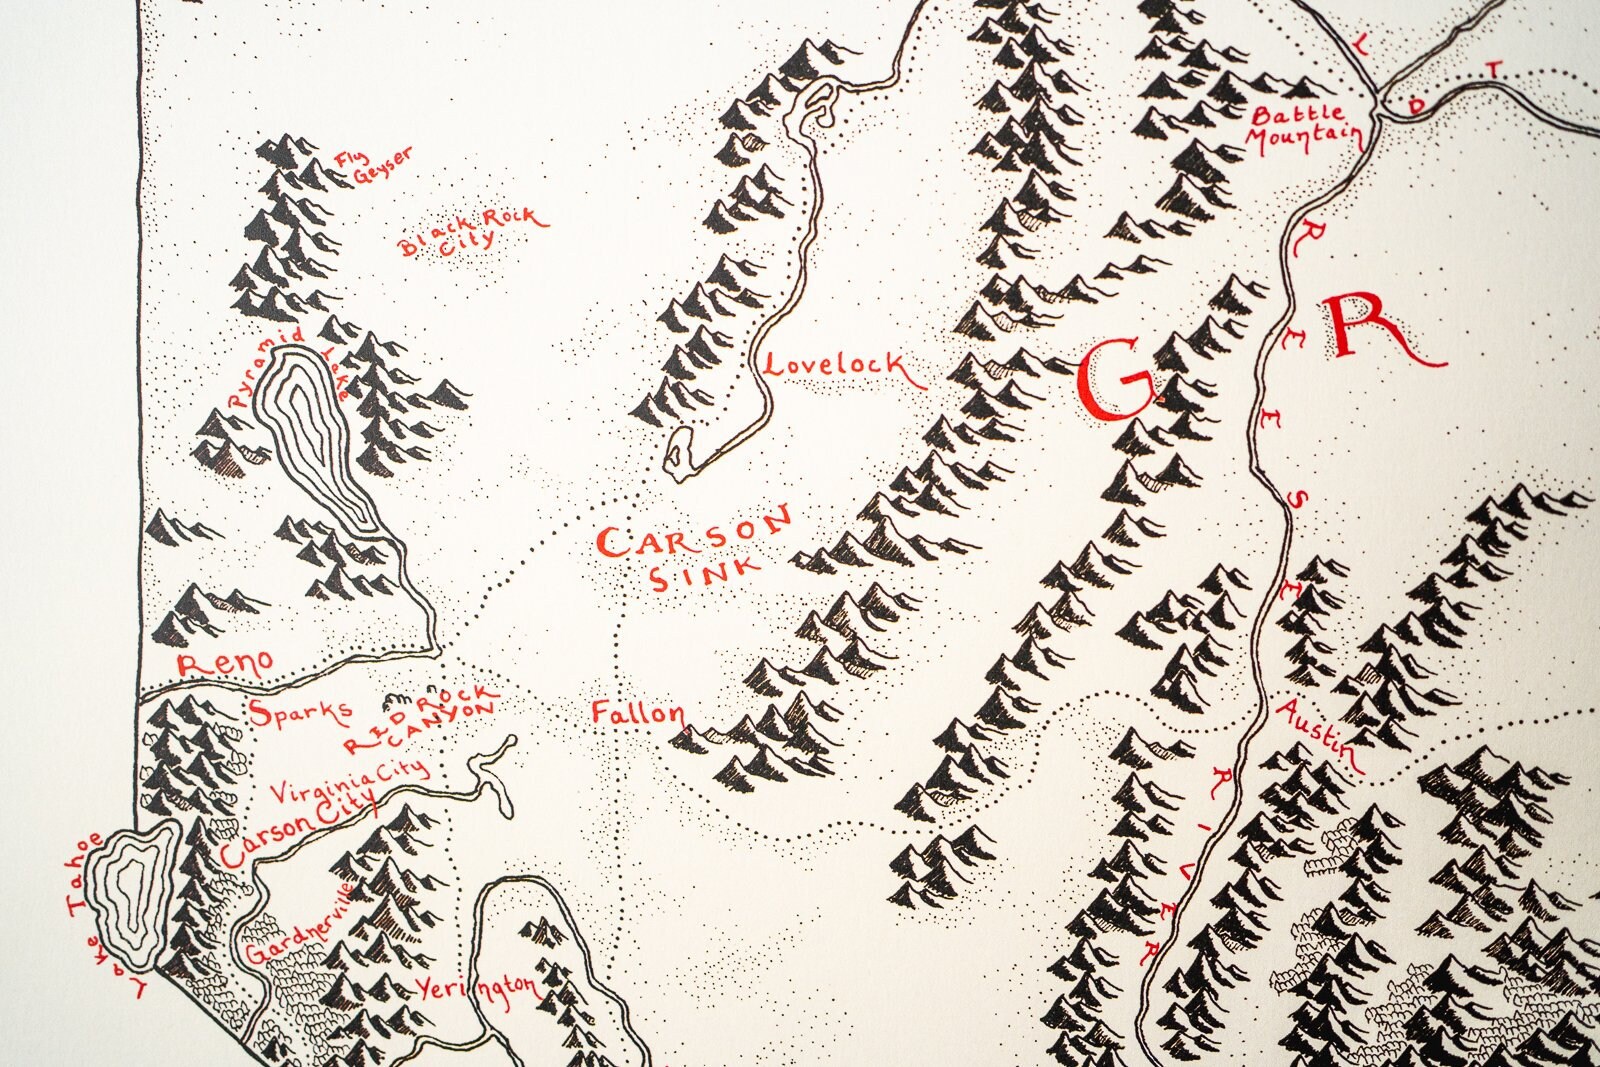 L
T
D
Battle
Mountain
Fly
Geyser
Black Rock
City
Pyramid Lake
Lovelock
G R
CARSON
SINK
Reno
Sparks
RED ROCK
CANYON
Fallon
Austin
Virginia City
Carson City
Lake Tahoe
Gardnerville
Yerington
REESE RIVER